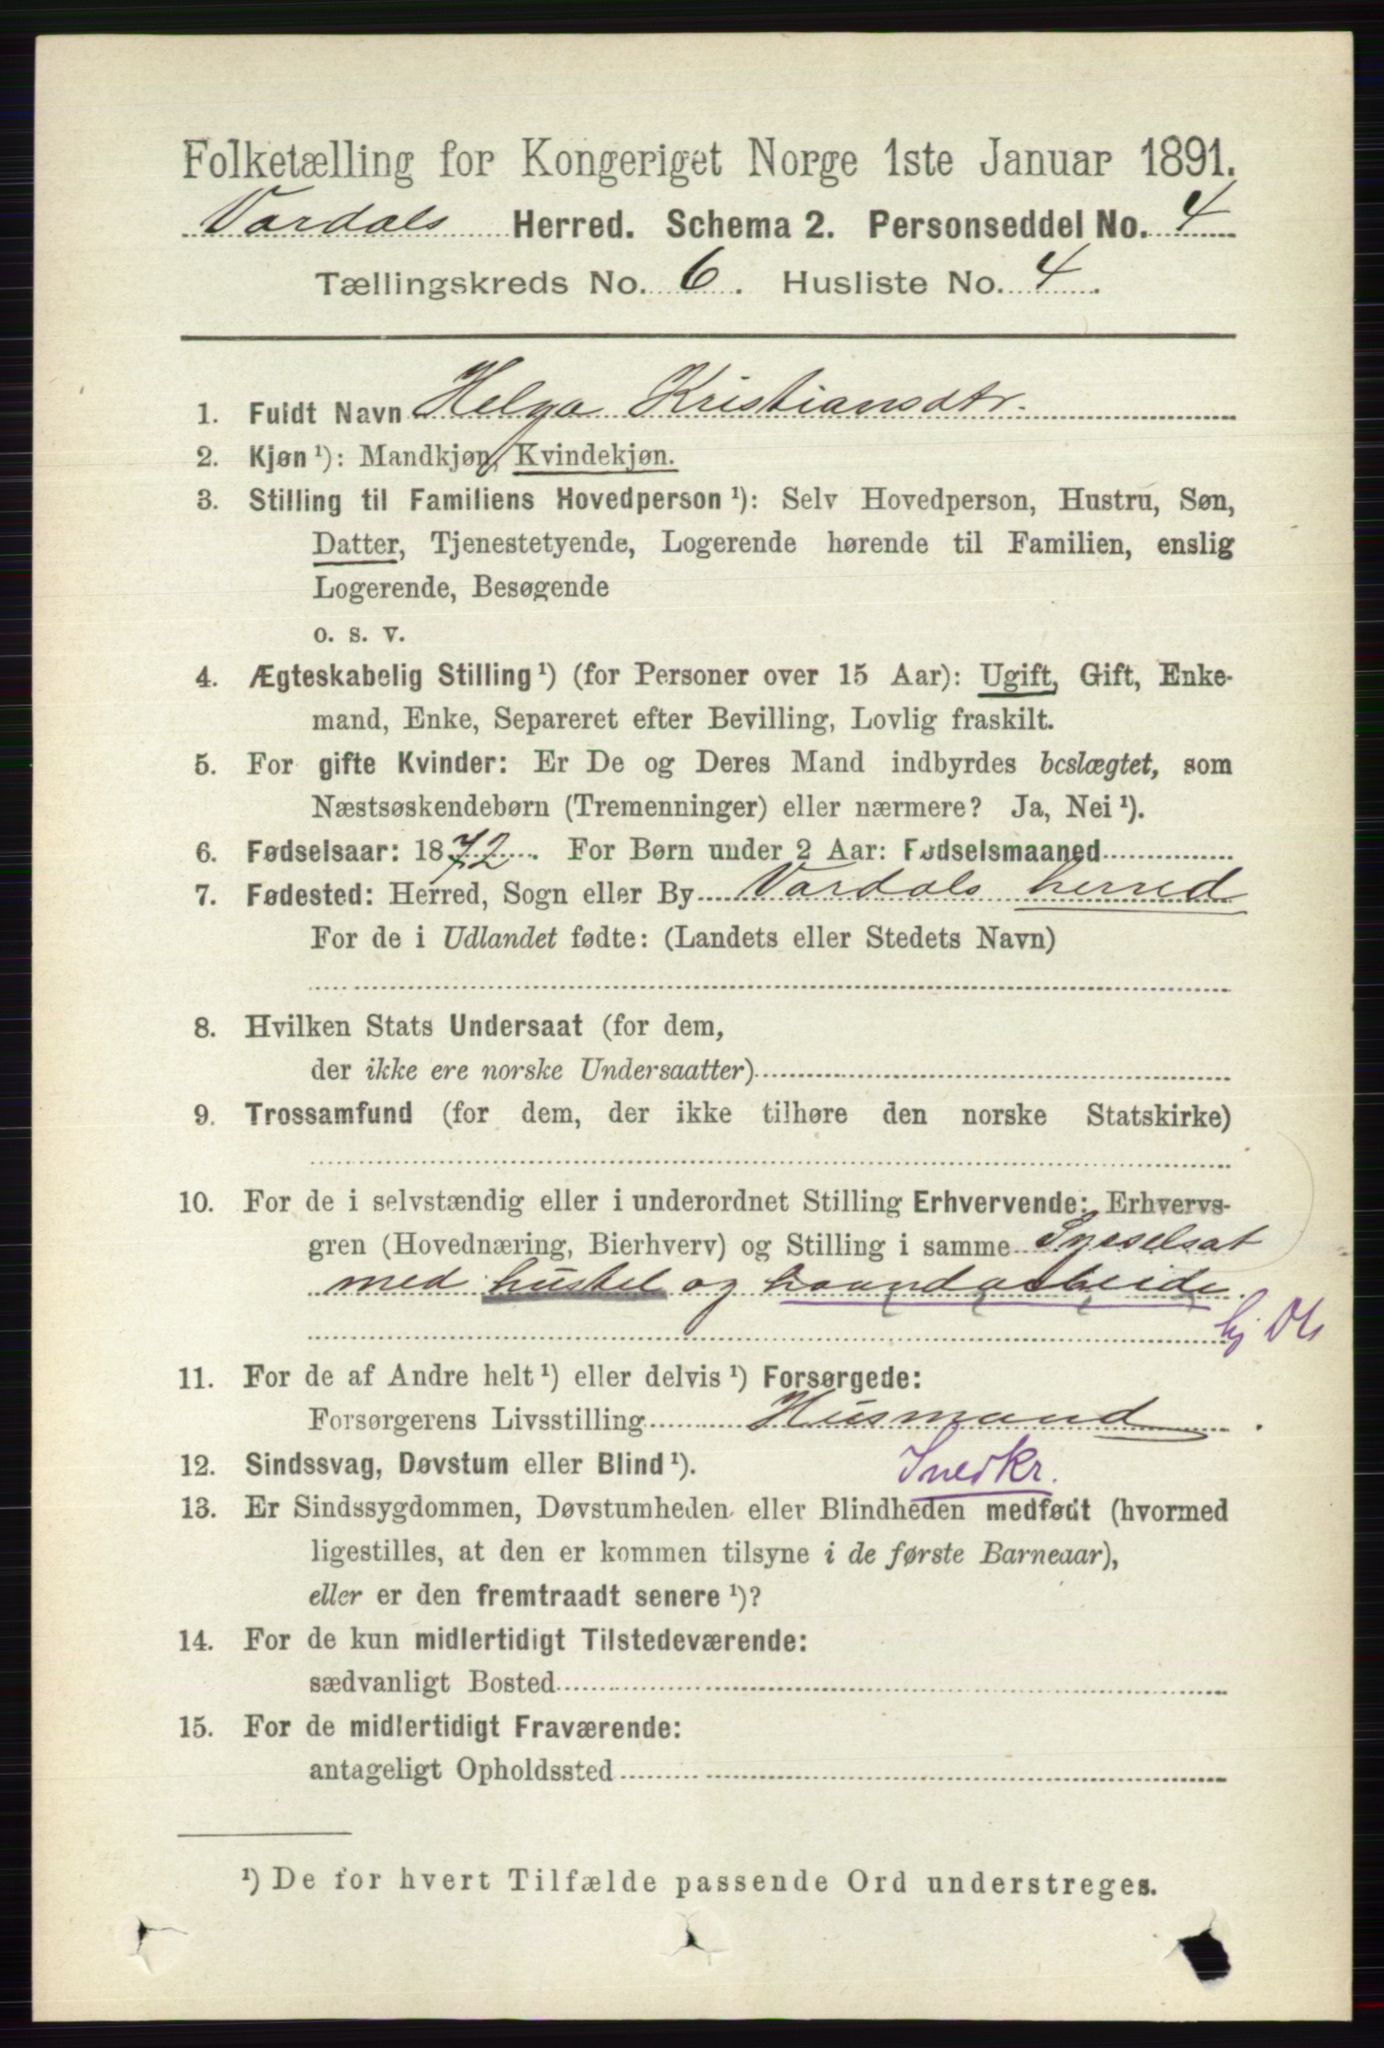 Folketælling for Kongeriget Norge 1ste Januar 1891.
Vardals Herred. Schema 2. Personseddel No. 4
Tællingskreds No. 6. Husliste No. 4.
1. Fuldt Navn Helga Kristiansdtr.
2. Kjøn ¹): Mandkjøn, Kvindekjøn.
3. Stilling til Familiens Hovedperson ¹): Selv Hovedperson, Hustru, Søn,
Datter, Tjenestetyende, Logerende hørende til Familien, enslig
Logerende, Besøgende
o. s. v.
4. Ægteskabelig Stilling ¹) (for Personer over 15 Aar): Ugift, Gift, Enke-
mand, Enke, Separeret efter Bevilling, Lovlig fraskilt.
5. For gifte Kvinder: Er De og Deres Mand indbyrdes beslægtet, som
Næstsøskendebørn (Tremenninger) eller nærmere? Ja, Nei ¹).
6. Fødselsaar: 1872. For Børn under 2 Aar: Fødselsmaaned
7. Fødested: Herred, Sogn eller By Vardals herred
For de i Udlandet fødte: (Landets eller Stedets Navn)
8. Hvilken Stats Undersaat (for dem,
der ikke ere norske Undersaatter)
9. Trossamfund (for dem, der ikke tilhøre den norske Statskirke)
10. For de i selvstændig eller i underordnet Stilling Erhvervende: Erhvervs-
gren (Hovednæring, Bierhverv) og Stilling i samme Syeselsat
med hustel og haandarbeide.
hj
11. For de af Andre helt ¹) eller delvis ¹) Forsørgede:
Forsørgerens Livsstilling Husmand.
12. Sindssvag, Døvstum eller Blind ¹). Snedkr.
13. Er Sindssygdommen, Døvstumheden eller Blindheden medfødt (hvormed
ligestilles, at den er kommen tilsyne i de første Barneaar),
eller er den fremtraadt senere ¹)?
14. For de kun midlertidigt Tilstedeværende:
sædvanligt Bosted
15. For de midlertidigt Fraværende:
antageligt Opholdssted
¹) De for hvert Tilfælde passende Ord understreges.